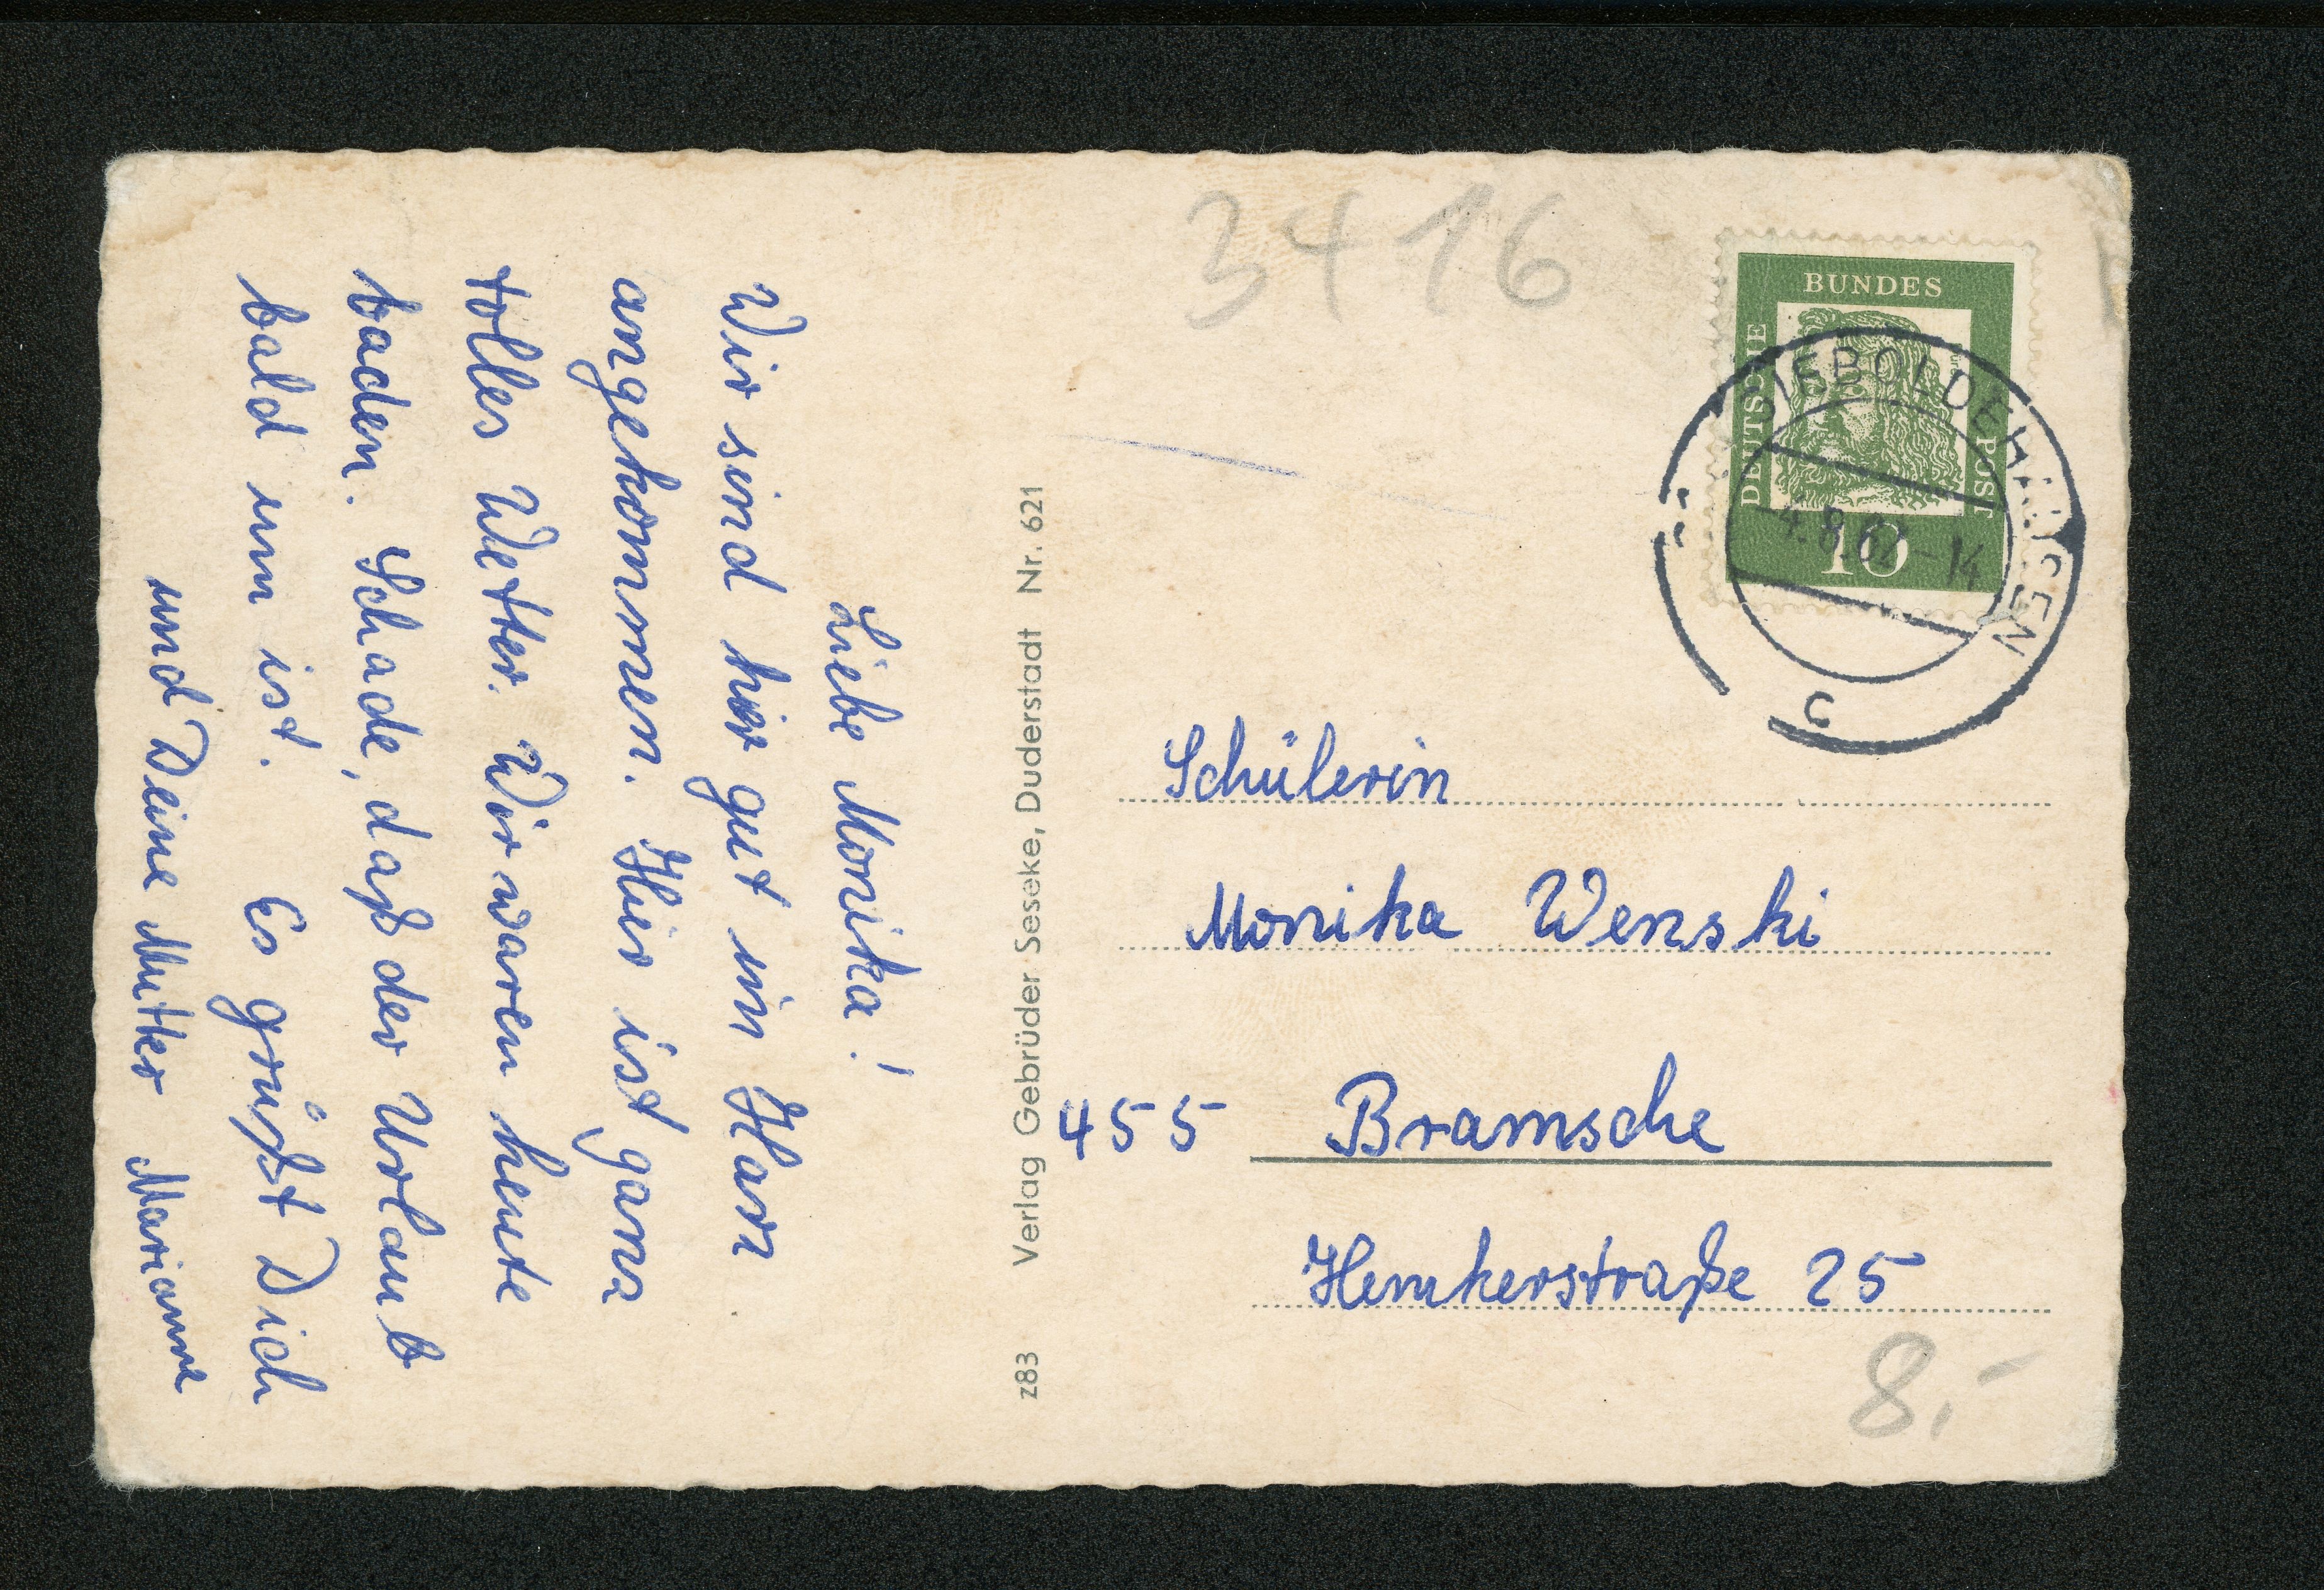 Liebe Monika!
Wir sind hier gut im Harz
angekommen. Hier ist ganz
tolles Wetter. Wir waren heute
baden. Schade, daß der Urlaub
bald um ist. Es grüßt Dich
und Deine Mutter Marianne
z83 Verlag Gebrüder Seseke, Duderstadt Nr. 621
3416
BUNDES
DEUTSCHE
POST
10
4.8.62-14
Schülerin
Monika Wenski
455 Bramsche
Hemkerstraße 25
8.-